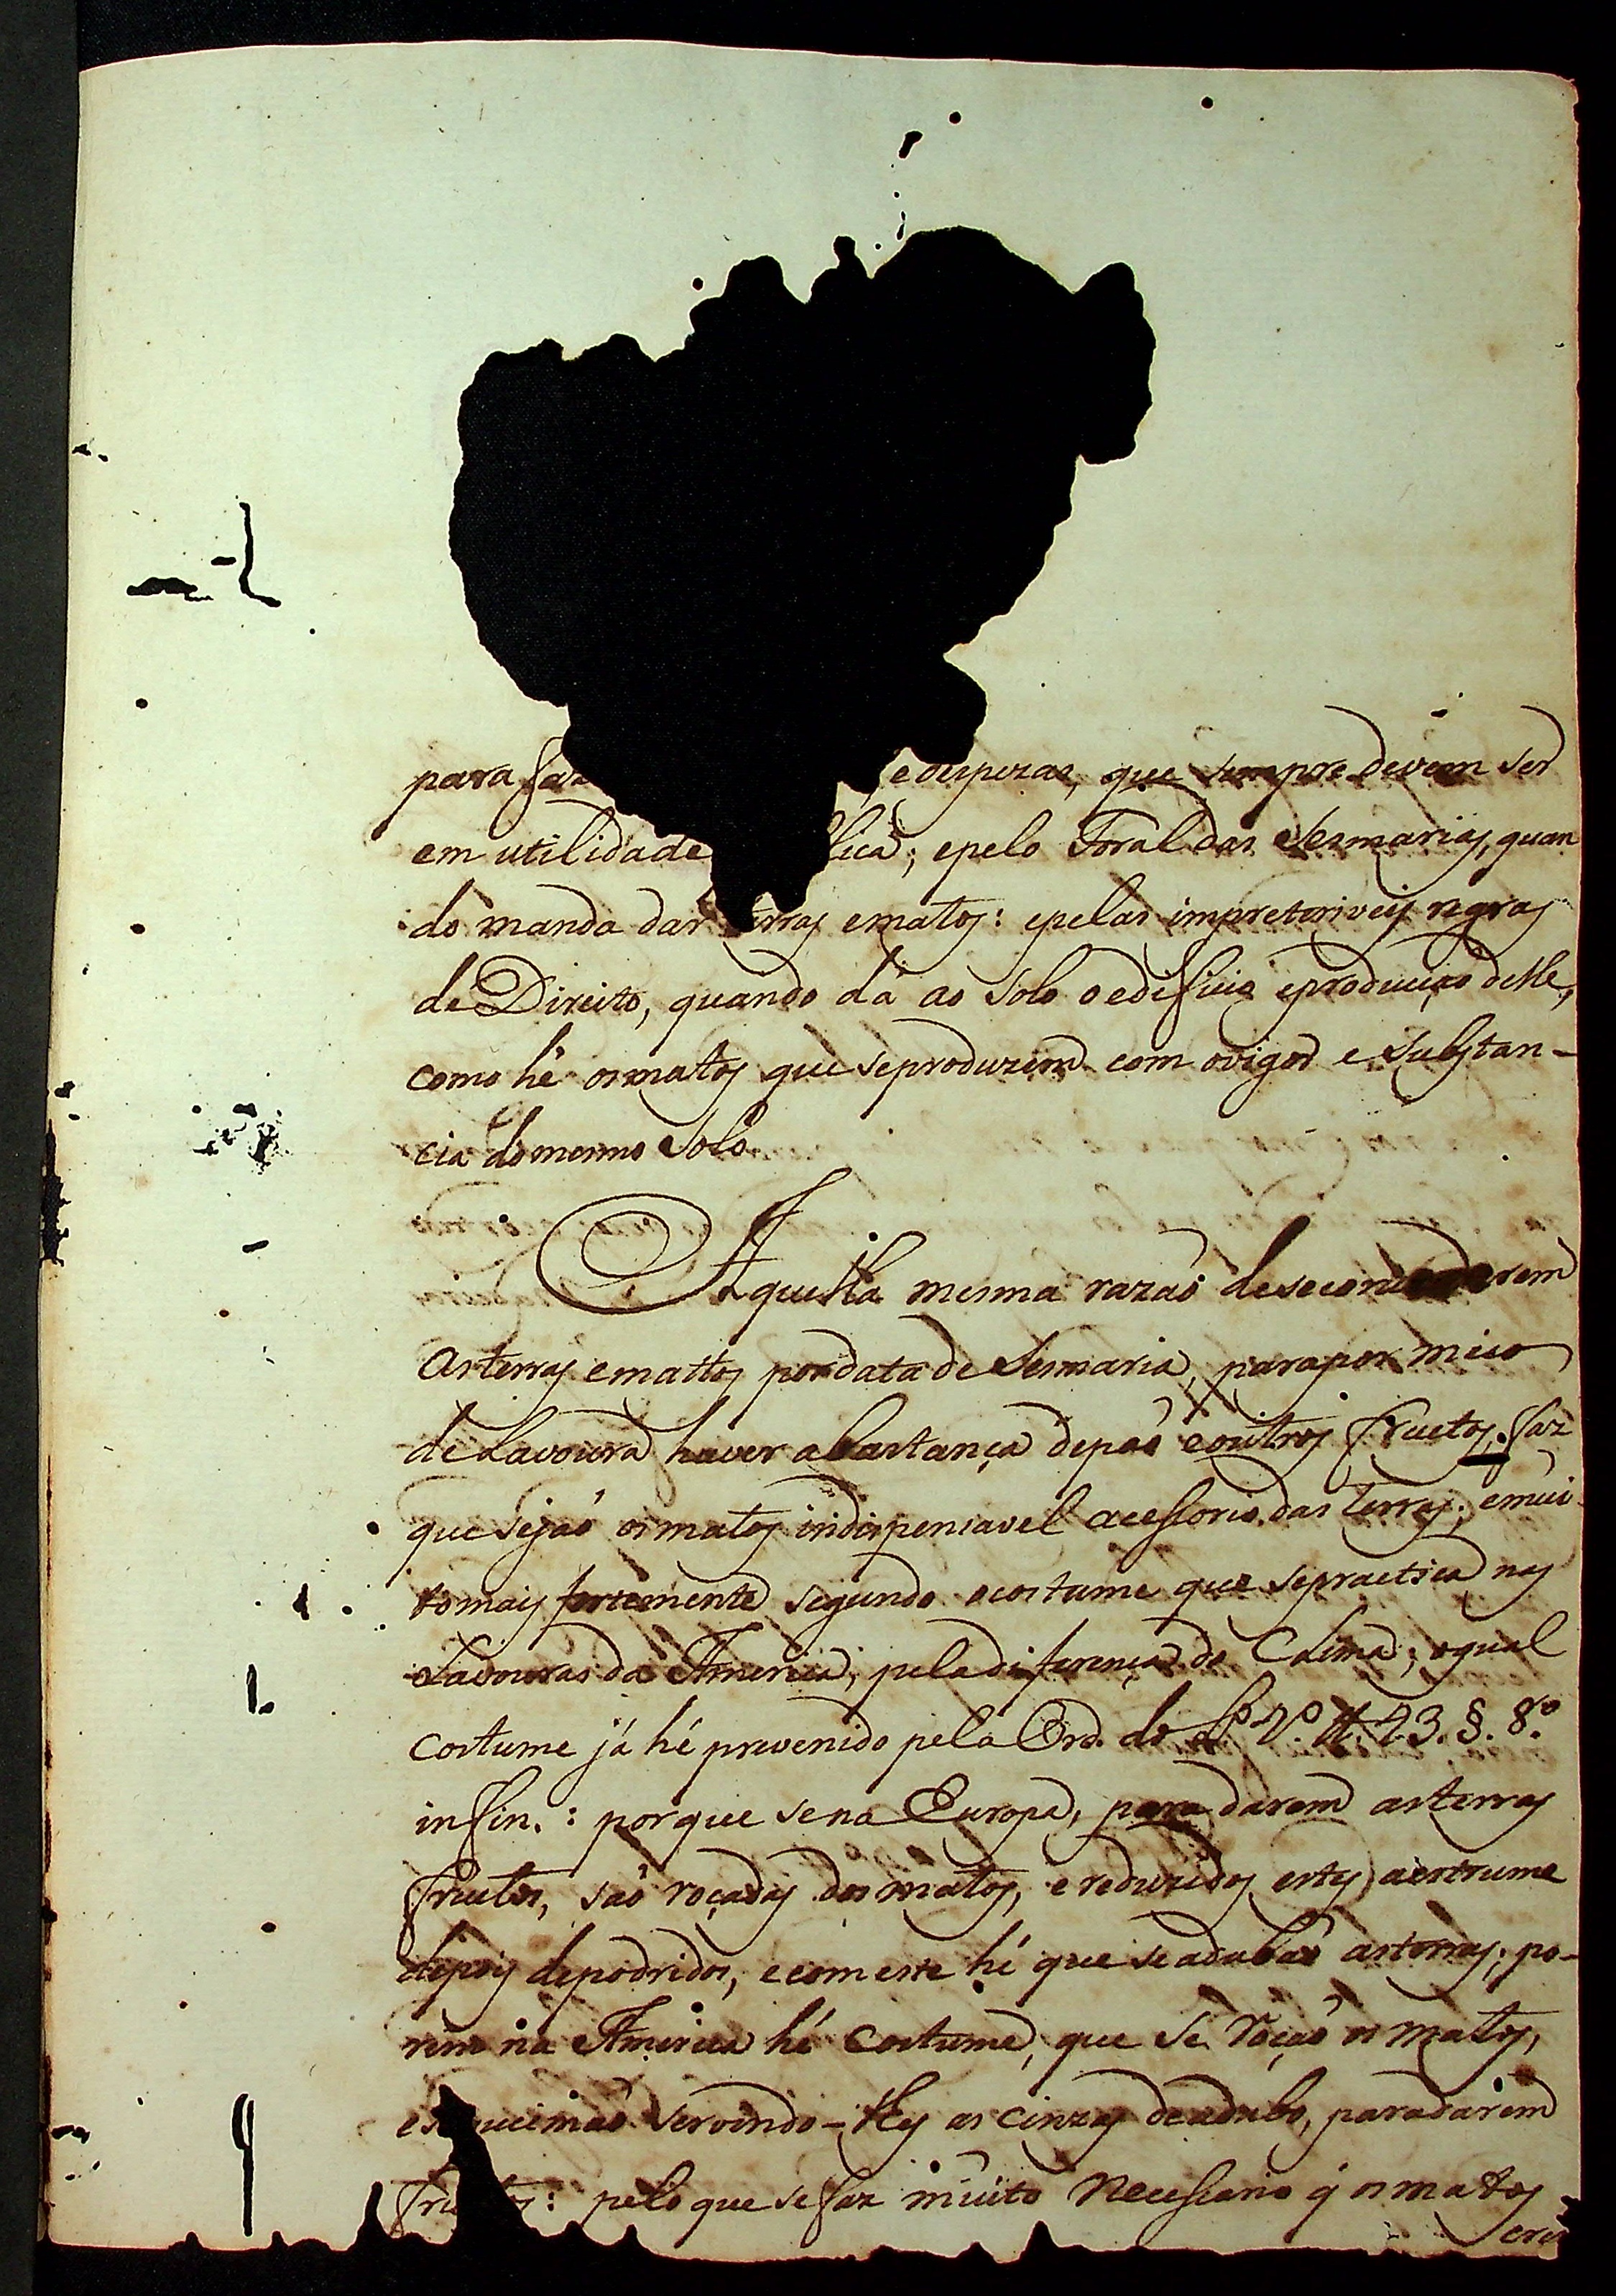 para faz e despezas, que sempre devem ser
em utilidade blica; e pelo Foral das Sesmarias, quan
do manda dar terras e matos: e pelas impreteriveis regras
de Direito, quando dá ao Solo o edificio e producção delle,
como hé os matos que se produzem com o vigor e Substan-
cia do mesmo Solo.
Aquella mesma razaõ de se concederem
as terras e mattos por data de Sesmaria, para por meio
de Lavoura haver abastança de paõ e outros fructos, faz
que sejaõ os matos indispensavel acessorio das terras; e mui
to mais fortemente segundo o costume que se practica nas
Lavouras da America, pela diferença do Calima; o qual
costume já hé prevenido pela Ord. do L.º 4.º tt. 43. §. 8.º
in fin. : porque se na Europa, para darem as terras
fructos, saõ roçadas dos matos, e reduzidos estes a estrume
depois de podridos, e com este hé que se adubaõ as terras; po-
rem na America hé costume, que se roçaõ os matos,
e se queimaõ servindo-lhes as cinzas de adubo, para darem
fructos: pelo que se faz muito Necessario q̃ os matos
cres